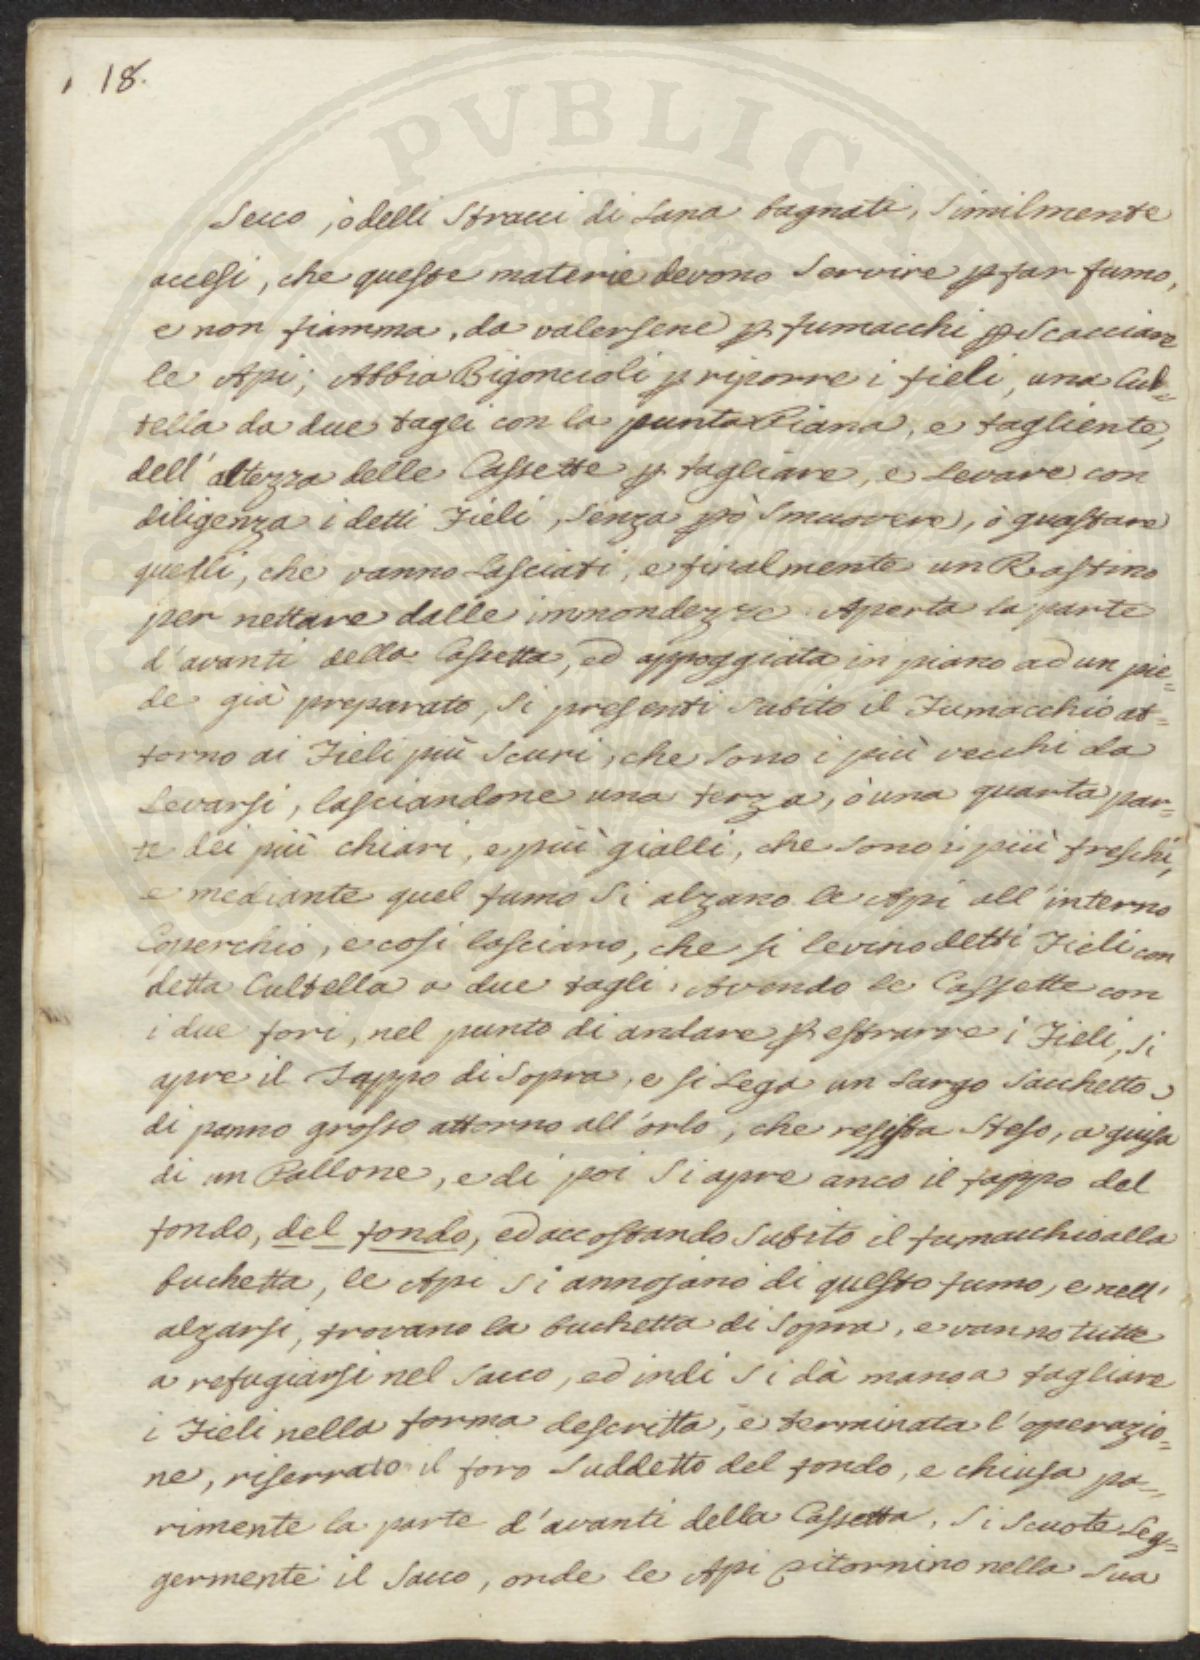 18.
PVBLICA
Secco, ò delli Stracci di Lana bagnati, Similmente
accesi, che queste materie devono Servire p far fumo,
e non fiamma, da valersene p fumacchi p Scacciare
le Api; Abbia Bigoncioli p riporre i fieli, una Cul=
tella da due tagli con la punta Piana, e tagliente,
dell'altezza delle Cassette p tagliare, e Levare con
diligenza i detti Fieli, Senza pò Smuovere, ò guastare
quelli, che vanno Lasciati, e finalmente un Rastino
per nettare dalle immondezze. Aperta la parte
d'avanti della Cassetta, ed appoggiata in piano ad un pie=
de già preparato, Si presenti Subito il Fumacchio at=
torno ai Fieli più Scuri, che Sono i più vecchi da
Levarsi, lasciandone una terza, ò una quarta par=
te dei più chiari, e più gialli, che Sono i più freschi,
e mediante quel fumo Si alzano le Api all'interno
Coperchio, e così lasciano, che si levino detti Fieli con
detta Cultella a due tagli. Avendo le Cassette con
i due fori, nel punto di andare p estrarre i Fieli, Si
apre il Tappo di Sopra, e si Lega un Largo Sacchetto
di panno grosso attorno all'orlo, che resista Steso, a guisa
di un Pallone, e di poi Si apre anco il tappo del
fondo, del fondo, ed accostando Subito il fumacchio alla
buchetta, le Api Si annojano di questo fumo, e nell'
alzarsi, trovano la buchetta di Sopra, e vanno tutte
a refugiarsi nel Sacco, ed indi Si dà mano a tagliare
i Fieli nella forma descritta, e terminata l'operazio=
ne, riserrato il foro Suddetto del fondo, e chiusa pa=
rimente la parte d'avanti della Cassetta, Si Scuote Leg=
germente il Sacco, onde le Api ritornino nella Sua